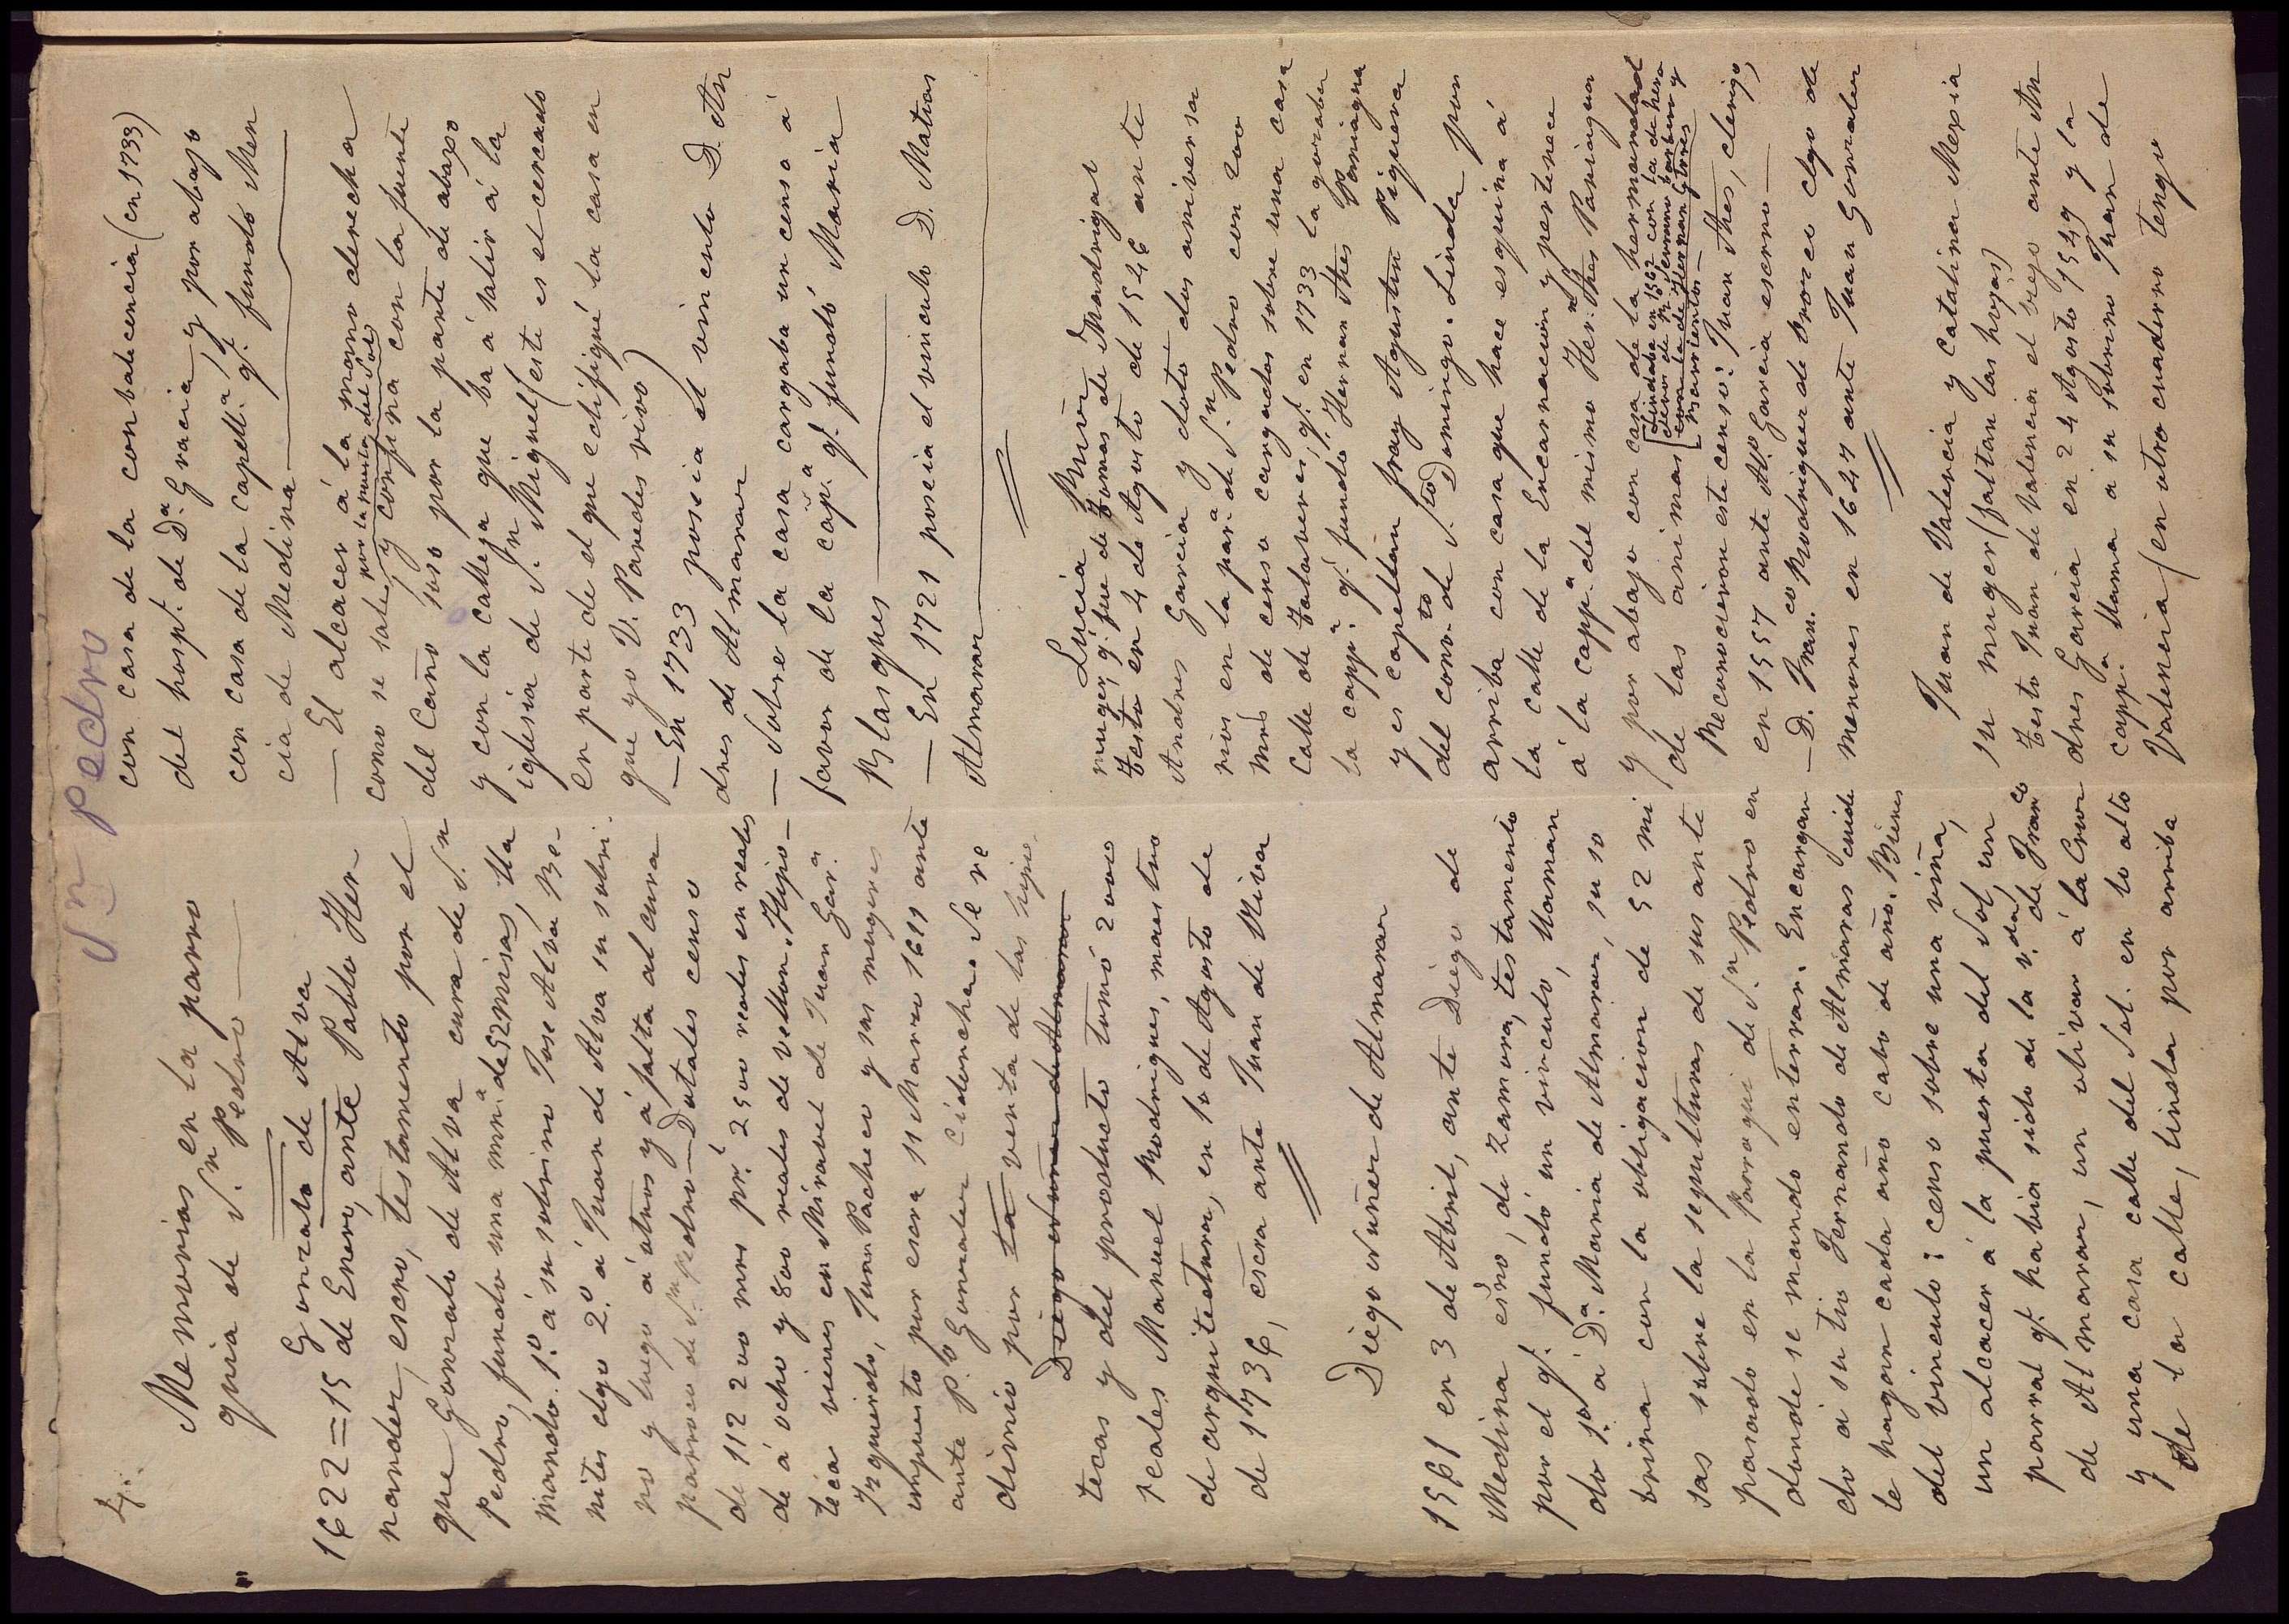 Sn Pedro
Memorias en la parro
quia de S.n Pedro
Gonzalo de Alva
1622=15 de Enero, ante Pablo Her
nandez, escno, testamento por el
que Gonzalo de Alva cura de S.n
Pedro, fundo una mn.a de 52 misas, lla
mando 1.o á su sobrino Jose Alva Be-
nites clgo 2.o á Juan de Alva su sobri.
no y luego á otros y á falta al cura
parroco de S.n Pedro—Dotales censo
de 112200 mrs pr.l 2500 reales en reales
de á ocho y 800 reales de vellon. Hipo-
teca vienes en Miravel de Juan Gar.a
Izquierdo, Juan Pacheco y sus mugeres
impuesto por escra 11 Marzo 1611 ante
ante P.o Gonzalez Cidoncha. Se re
dimio por la venta de las hipo
Diego Nuñez de Almaraz
tecas y del producto tomó 2000
reales Manuel Rodrigues, maestro
de arquitectura, en 10 de Agosto de
de 1736, escra ante Juan de Riva
Diego Nuñez de Almaraz
1561 en 3 de Abril, ante Diego de
Medina esno, de Zamora, testamento
por el q.e fundó un vinculo, llaman
do 1.o á D.a Maria de Almaraz, su so
brina con la obligacion de 52 mi
sas sobre la sepulturas de sus ante
pasado en la parroqui de S.n Pedro en
donde se mandó enterrar. Encargan
do á su tio Fernando de Almaraz cuide
le hagan cada año cabo de año. Bienes
del vinculo: censo sobre una viña,
un alcacer á la puerta del Sol, un
parral q.e habia sido de la v.da de Fran.co
de Almaraz, un olivar á la Cruz
y una casa calle del Sol. en lo alto
de la calle, linda por arriba
con casa de la conbalecencia (en 1733)
del hosp.l de D.a Gracia y por abajo
con casa de la capell.a q.e fundo Men
cia de Medina
— El alcacer á la mano derecha
como se sale por la puerta del Sol y confina con la fuente
del Caño soso por la parte de abaxo
y con la calleja que ba á salir á la
iglesia de S.n Miguel (este es el cercado
en parte de el que edifiqué la casa en
que yo V. Paredes vivo)
— En 1733 poseia el vinculo D. An
dres de Almaraz
— Sobre la casa cargaba un censo á
favor de la cap.a q.e fundó Maria
Blasques
— En 1721 poseia el vinculo D. Matias
Almaraz
Lucia Ruiz
muger q.e fue de Tomas de Madrigal
testó en 4 de Agosto de 1546 ante
Andres Garcia y dotó dos aniversa
rios en la par.a de S.n Pedro con 200
mrs de censo cargados sobre una casa
Calle de Talaveres, q.e en 1733 la gozaba
la capp.a q.e fundó Hernan Ares Paniagua
y es capellan fray Agustin Piguera
del conv.to de S.to Domingo. Linda por
arriba con casa que hace esquina á
la calle de la Encarnacion y pertenece
á la capp.a del mismo Her.n Ares Paniagua
y por abajo con casa de la hermandad
de las animas [lindaba en 1562 con la de here
deros de
con la de Hernan Gtres
Barrientos—
Reconocieron este censo: Juan Ares, clerigo,
en 1557 ante Al.o Garcia escrno—
— D. Fran.co Rodriguez de Orozco clgo de
menores en 1647 ante Juan Gonzalez
Juan de Valencia y Catalina Mexia
su muger (faltan las hojas)
testo Juan de Valencia el viejo ante An
dres Garcia en 24 Agosto 1549 y la
capp.a llama a su sobrino Juan de
Valencia (en otro cuaderno tengo